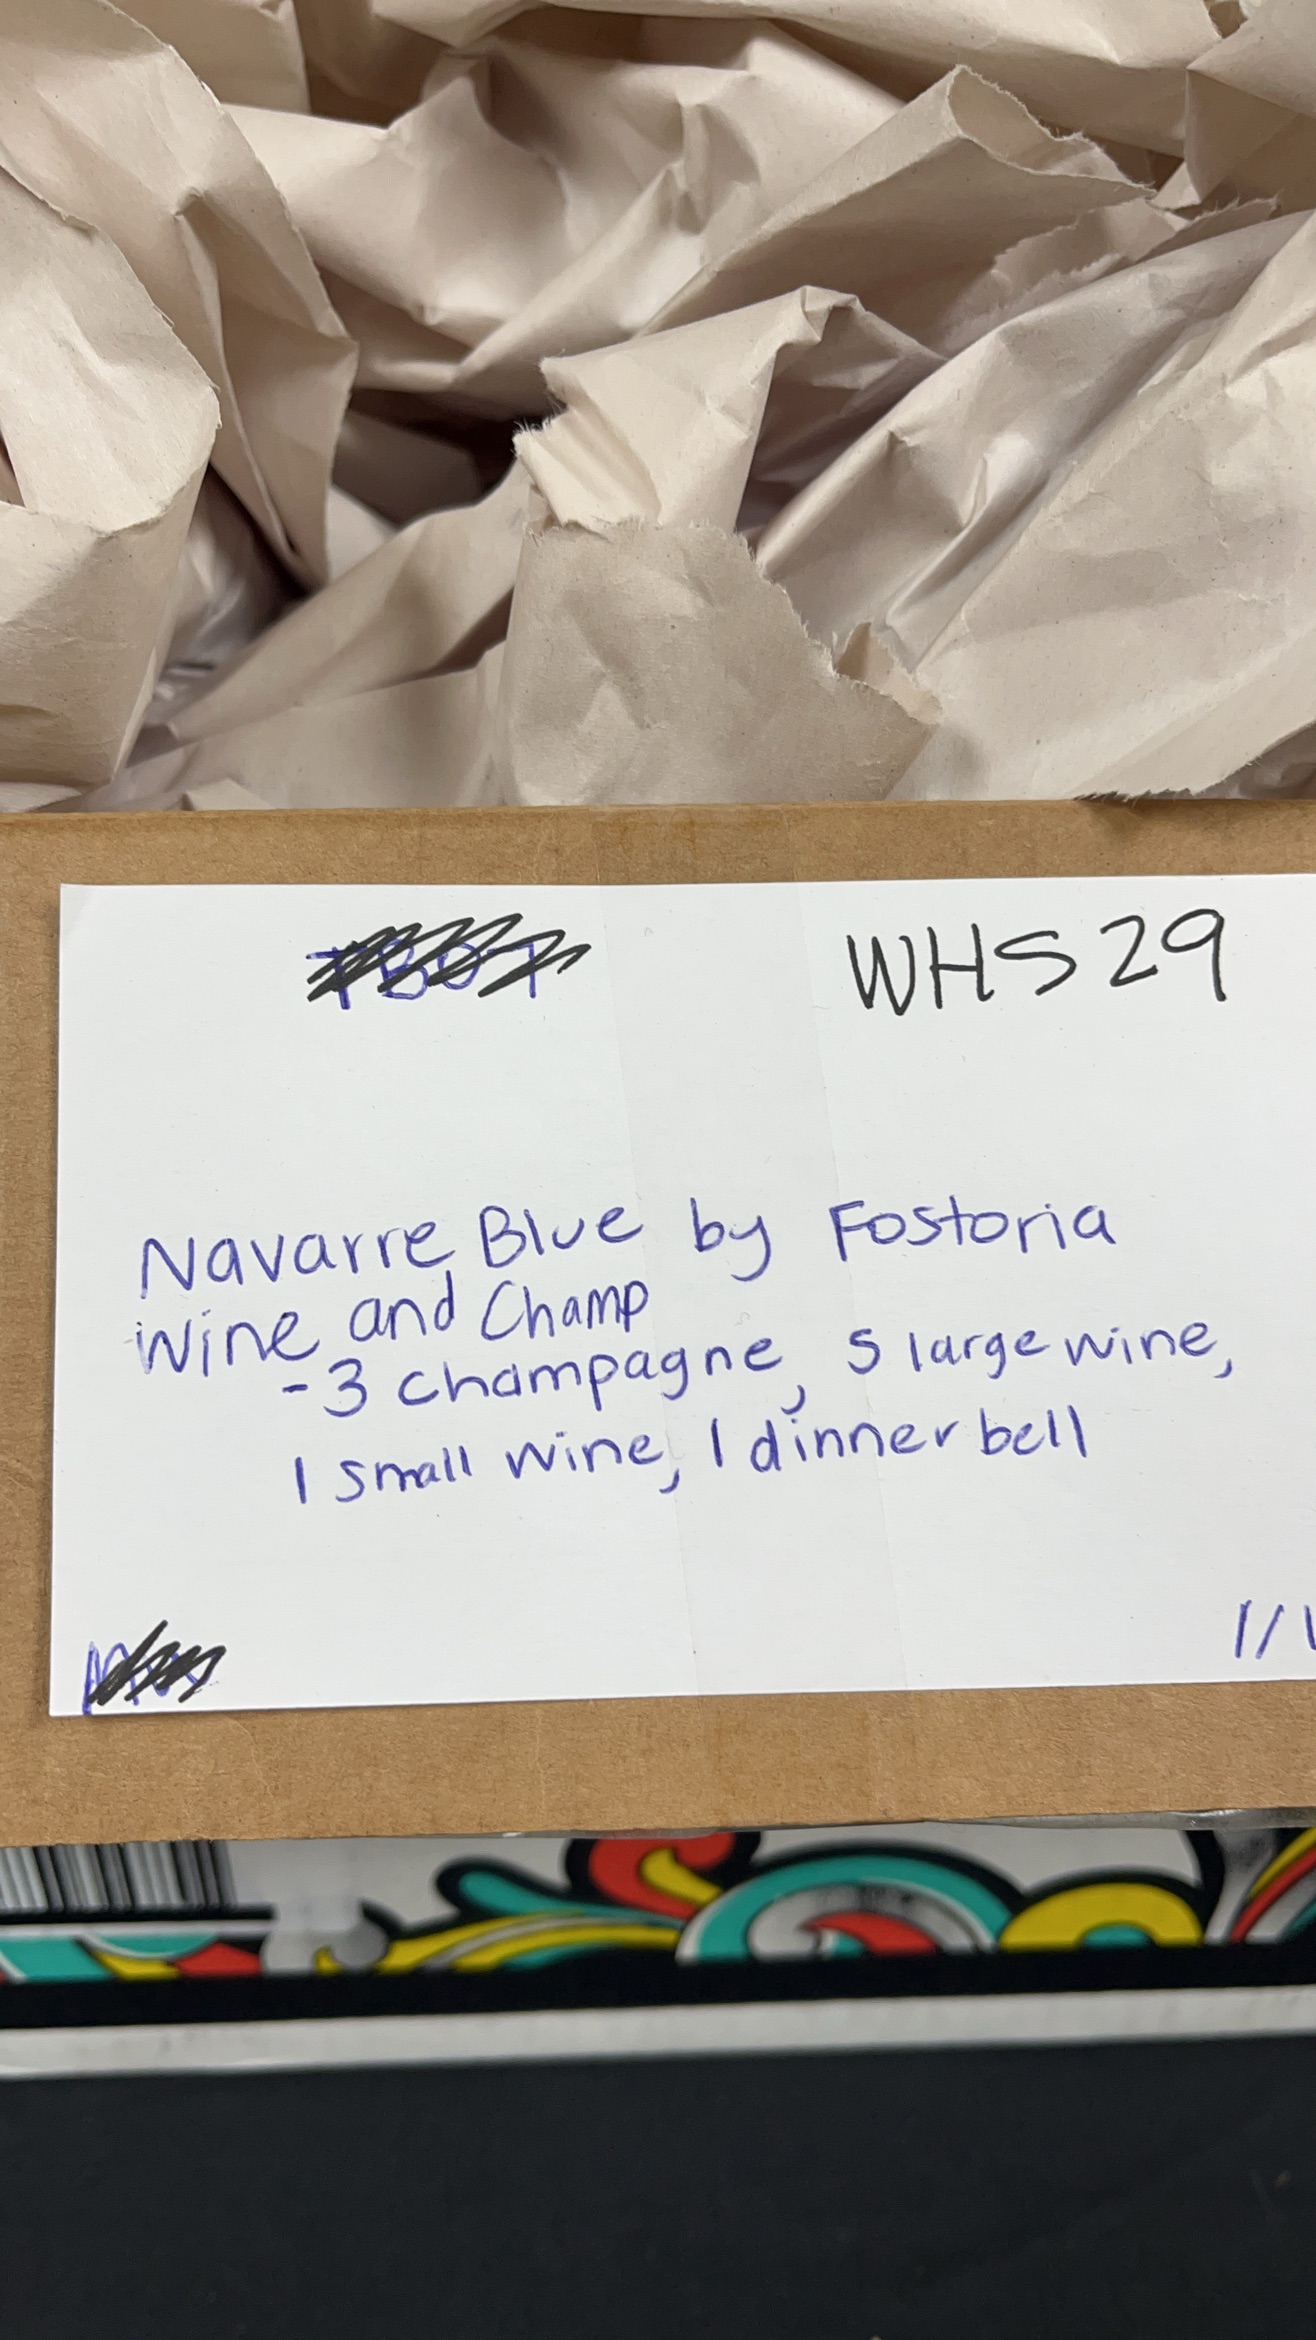 WHS29
Navarre Blue by Fostoria
Wine and Champ
-3 champagne, 5 large wine,
1 small wine, 1 dinner bell